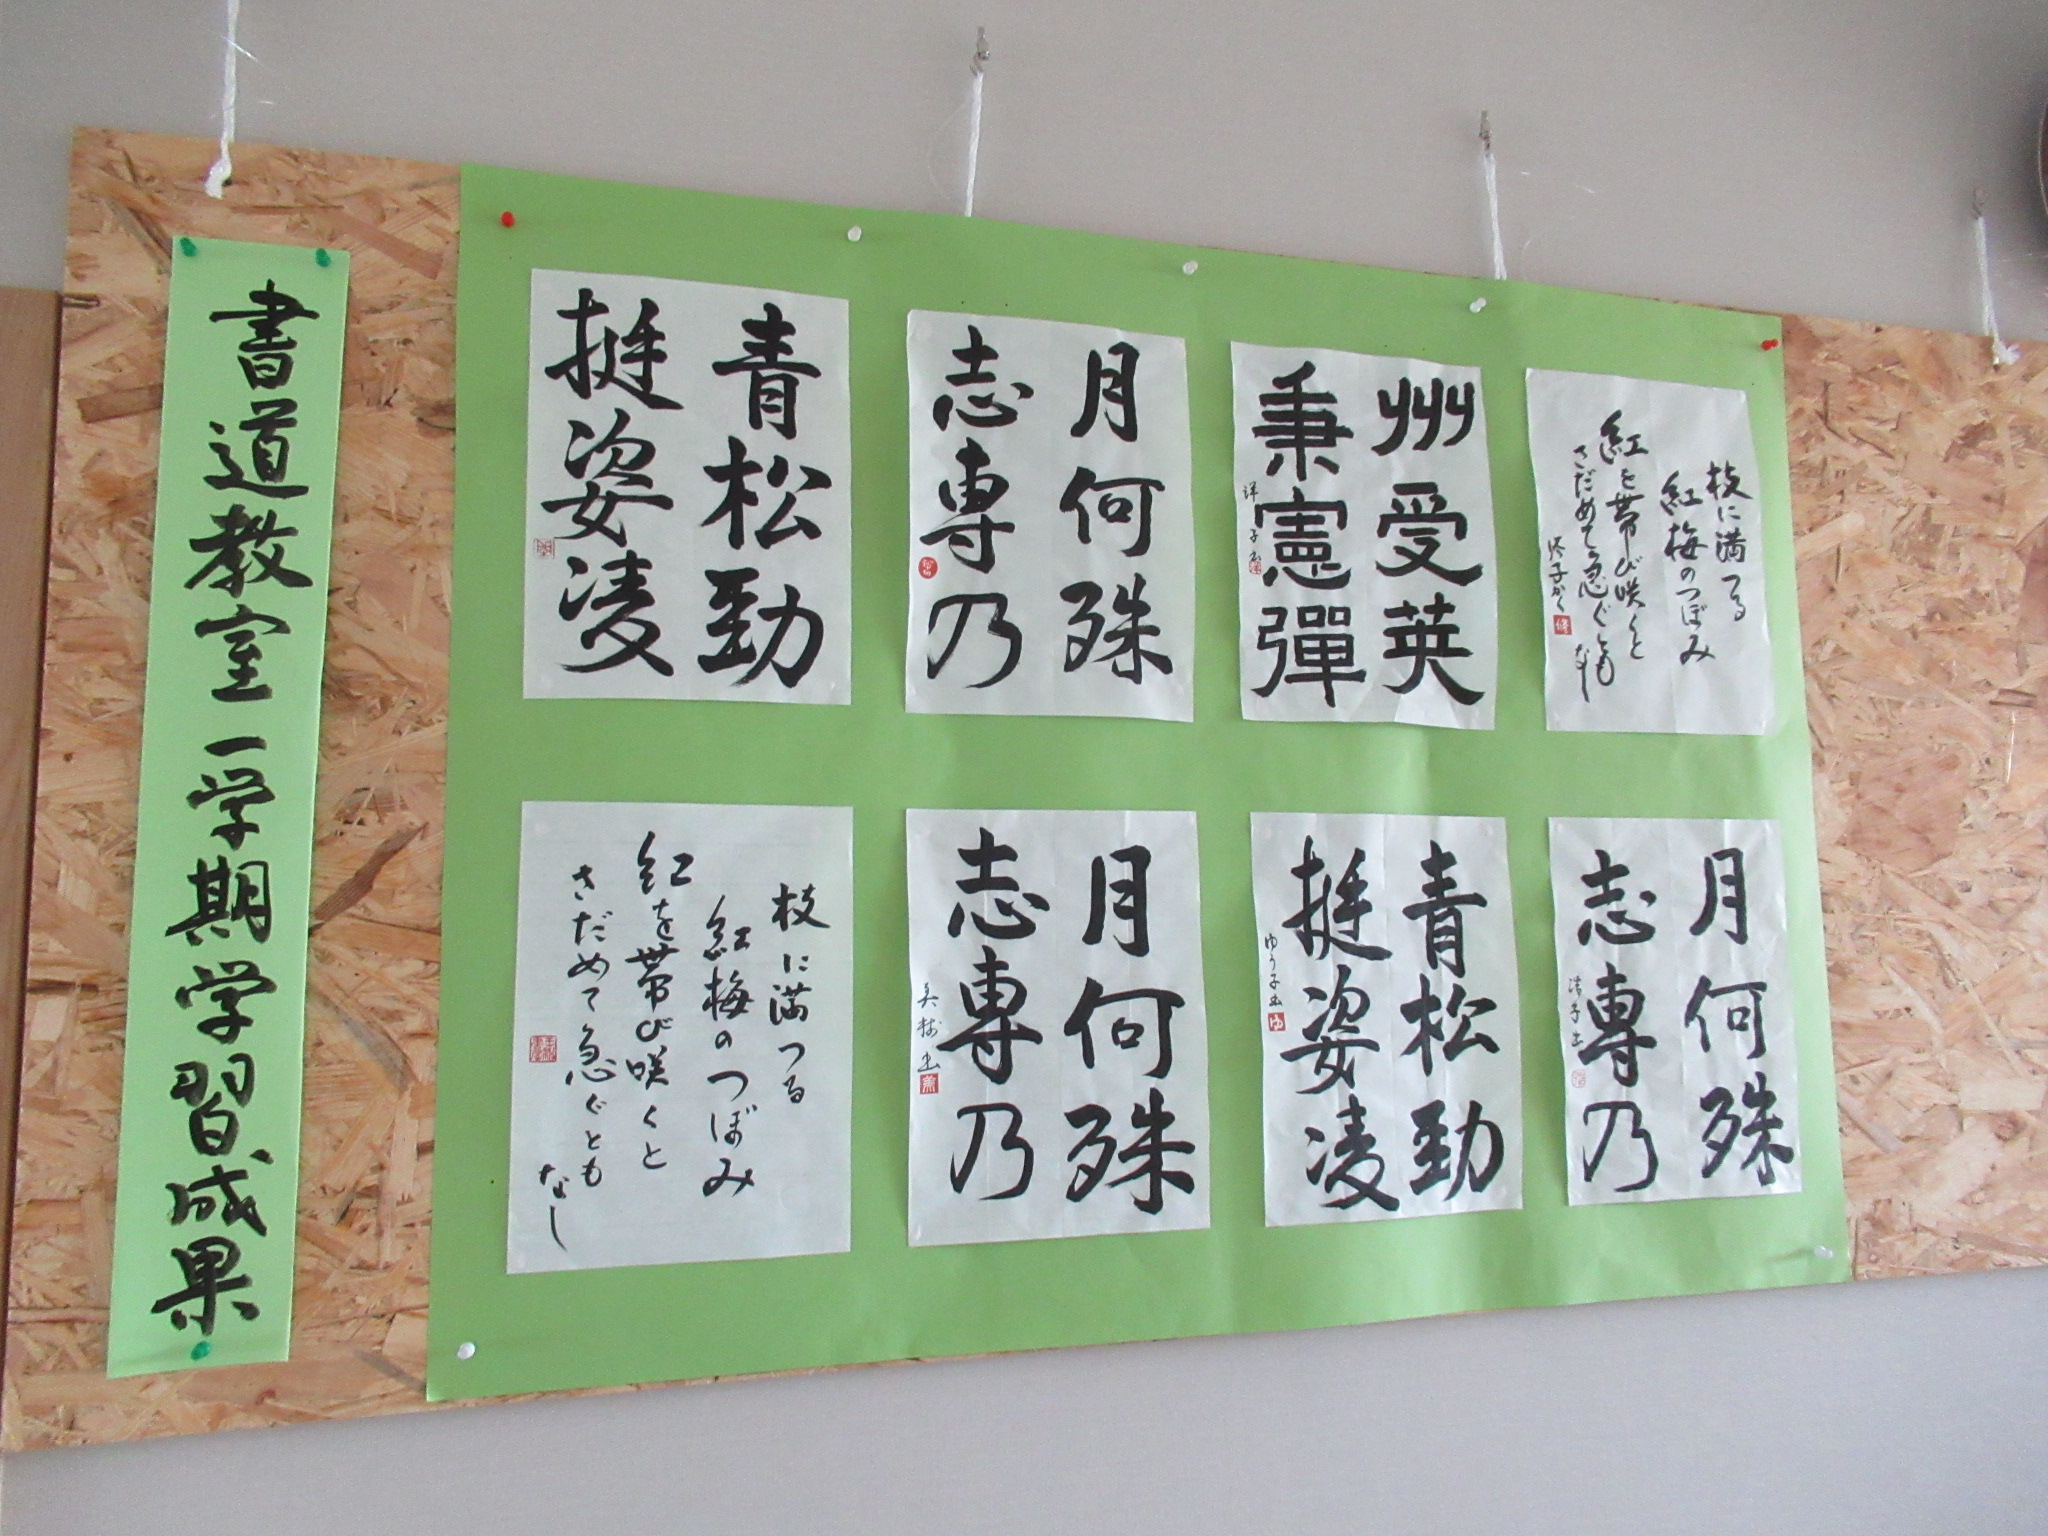 書道教室一学期学習成果
青松勁
挺姿凌
月何殊
志専乃
州受英
秉憲彈
枝に満つる
紅梅のつぼみ
紅を帯び咲くと
さだめて急ぐとも
なし
枝に満つる
紅梅のつぼみ
紅を帯び咲くと
さだめて急ぐとも
なし
月何殊
志専乃
青松勁
挺姿凌
ゆう子書
ゆ
月何殊
志専乃
清子書